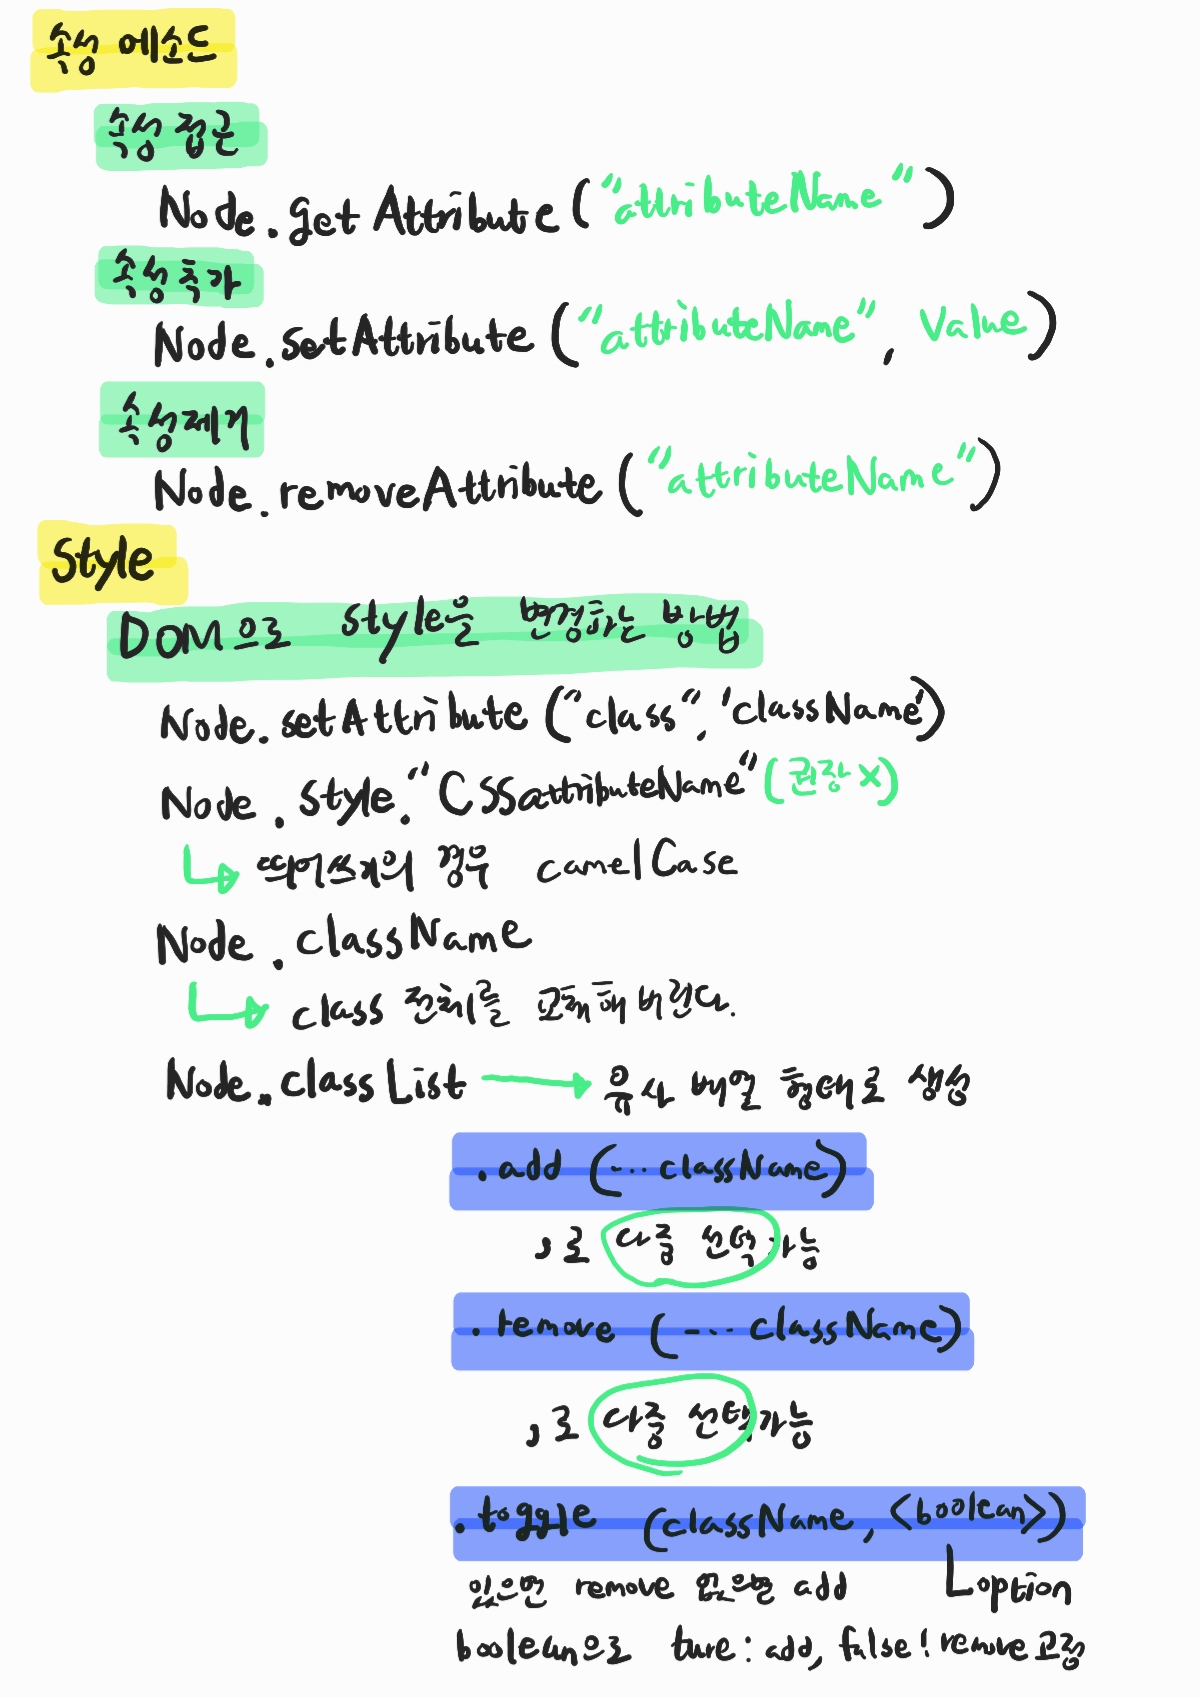 속성 메소드
속성 접근
Node.getAttribute("attributeName")
속성 추가
Node.setAttribute("attributeName", Value)
속성 제거
Node.removeAttribute("attributeName")
Style
DOM으로 style을 변경하는 방법
Node.setAttribute("class", 'className')
Node.style."CSSattributeName" (권장 X)
띄어쓰기의 경우 camelCase
Node.className
class 전체를 교체해 버린다.
Node.classList → 유사 배열 형태로 생성
.add (...className)
,로 다중 선택가능
.remove (...className)
,로 다중 선택가능
.toggle (className, <boolean>)
있으면 remove 없으면 add option
boolean으로 ture: add, false: remove 고정